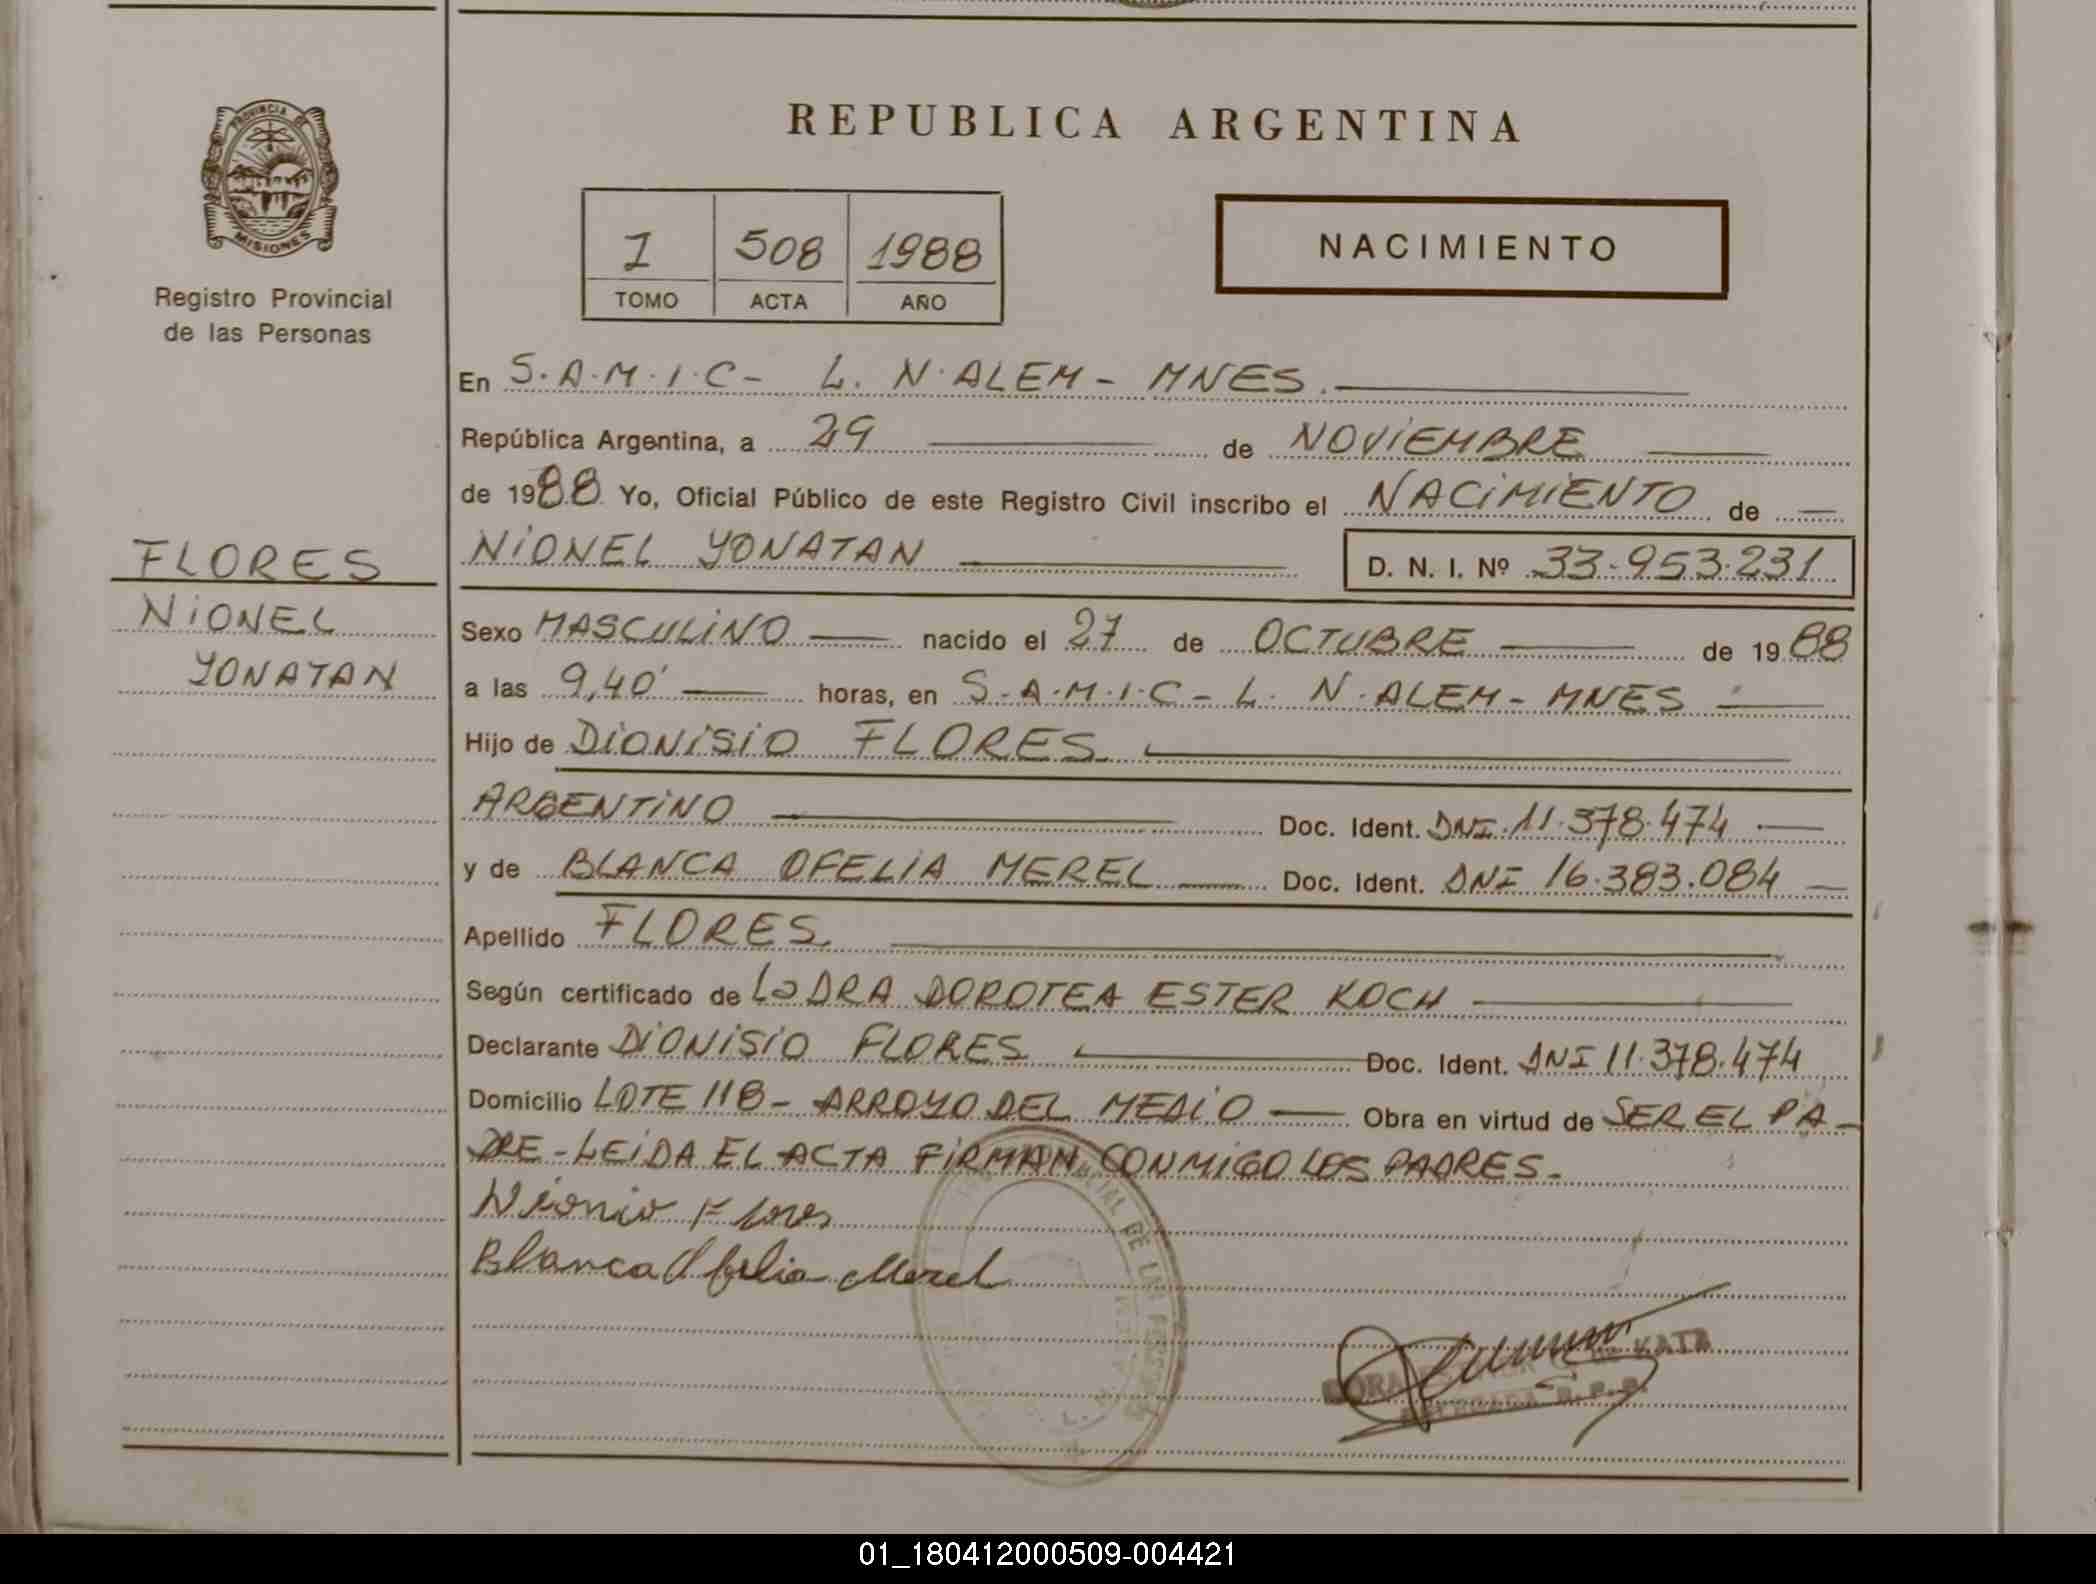 PROVINCIA DE
MISIONES
Registro Provincial
de las Personas
FLORES
NIONEL
YONATAN
REPUBLICA ARGENTINA
I 508 1988
TOMO ACTA AÑO
NACIMIENTO
En S.A.M.I.C- L. N. ALEM - MNES.
República Argentina, a 29 de NOVIEMBRE
de 1988 Yo, Oficial Público de este Registro Civil inscribo el NACIMIENTO de
NIONEL YONATAN D. N. I. Nº 33.953.231
Sexo MASCULINO nacido el 27 de OCTUBRE de 1988
a las 9,40' horas, en S.A.M.I.C - L. N. ALEM - MNES
Hijo de DIONISIO FLORES
ARGENTINO Doc. Ident. DNI. 11.378.474
y de BLANCA OFELIA MEREL Doc. Ident. DNI 16.383.084
Apellido FLORES
Según certificado de LA DRA DOROTEA ESTER KOCH
Declarante DIONISIO FLORES Doc. Ident. DNI 11.378.474
Domicilio LOTE 118 - ARROYO DEL MEDIO Obra en virtud de SER EL PA-
DRE - LEIDA EL ACTA FIRMAN CONMIGO LOS PADRES.
Dionisio Flores
Blanca Ofelia Merel
01_180412000509-004421